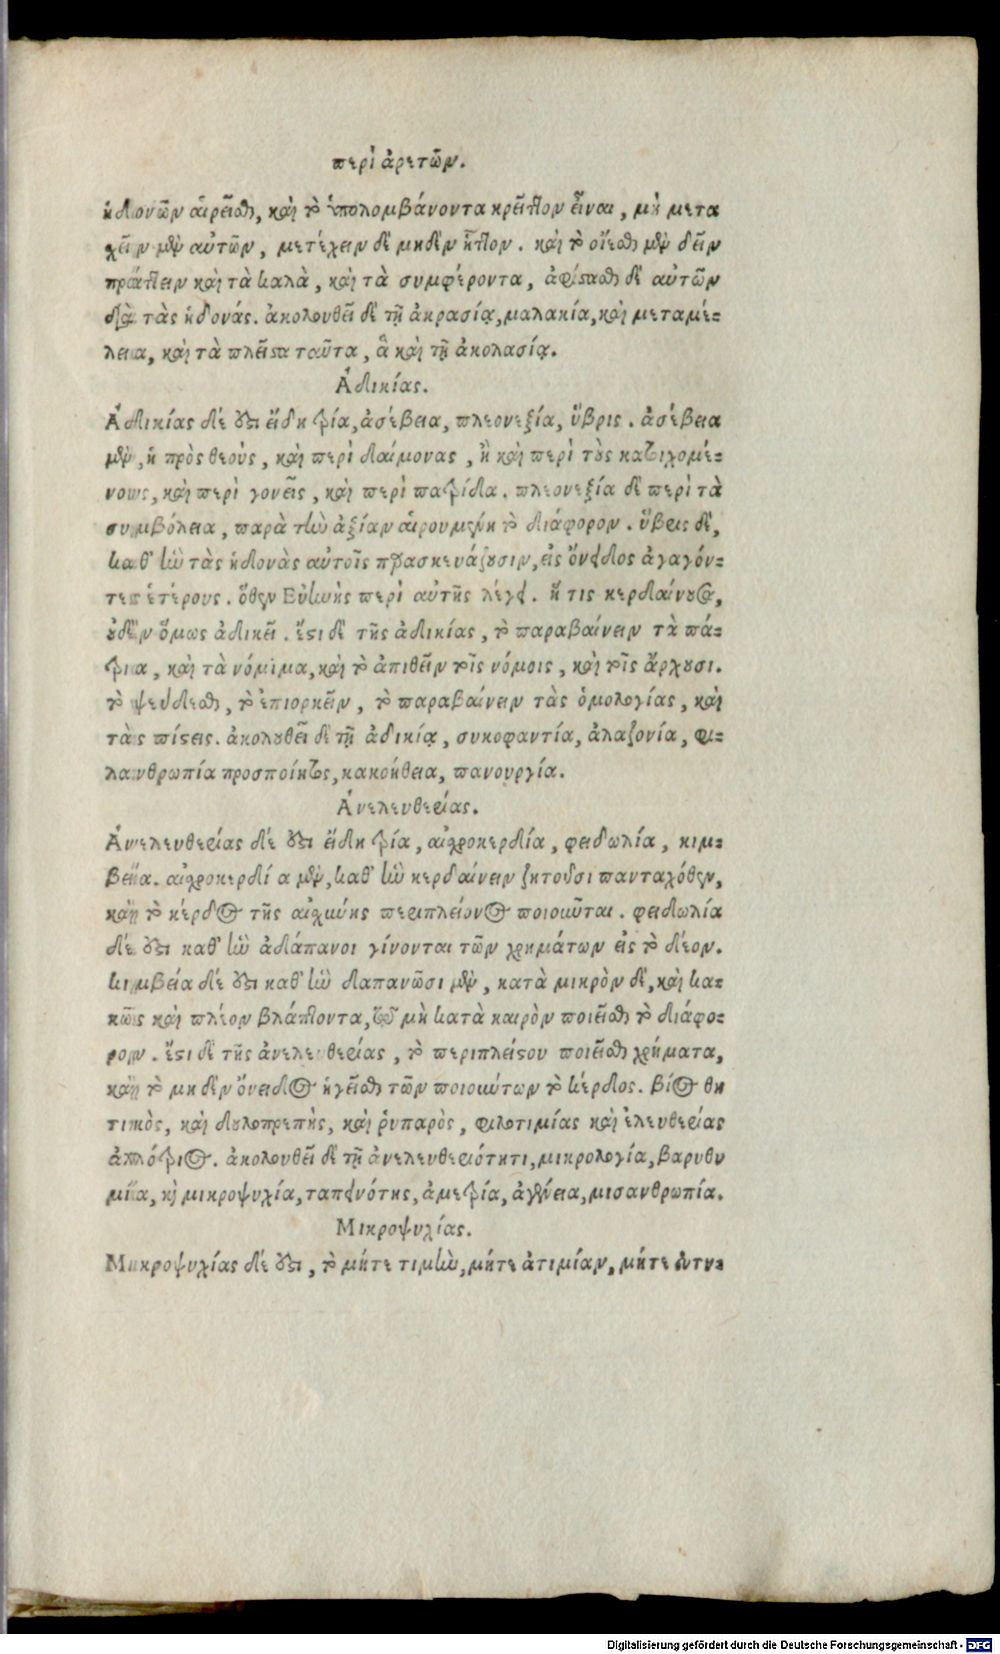 περὶ ἀρετῶν.
ἡδονῶν αἱρεῖσθαι, καὶ τὸ ὑπολομβάνοντα κρεῖττον εἶναι, μὴ μετα
χεῖν μὲν αὐτῶν, μετέχειν δὲ μηδὲν ἧττον. καὶ τὸ οἴεσθαι μὲν δεῖν
πράττειν καὶ τὰ καλὰ, καὶ τὰ συμφέροντα, ἀφίστασθαι δὲ αὐτῶν
διὰ τὰς ἡδονάς. ἀκολουθεῖ δὲ τῇ ἀκρασίᾳ, μαλακία, καὶ μεταμέ-
λεια, καὶ τὰ πλεῖστα ταῦτα, ἃ καὶ τῇ ἀκολασίᾳ.
Ἀδικίας.
Ἀδικίας δέ ἐστι εἴδη τρία, ἀσέβεια, πλεονεξία, ὕβρις. ἀσέβεια
μὲν, ἡ πρὸς θεοὺς, καὶ περὶ δαίμονας, ἢ καὶ περὶ τοὺς κατοιχομέ-
νους, καὶ περὶ γονεῖς, καὶ περὶ πατρίδα. πλεονεξία δὲ περὶ τὰ
συμβόλεια, παρὰ τὴν ἀξίαν αἱρουμένη τὸ διάφορον. ὕβρις δὲ,
καθ' ἣν τὰς ἡδονὰς αὐτοῖς παρασκευάζουσιν, εἰς ὄνειδος ἀγαγόν-
τες ἑτέρους. ὅθεν Εὔηνης περὶ αὐτῆς λέγει. ἥ τις κερδαίνουσα,
οὐδὲν ὅμως ἀδικεῖ. ἔστι δὲ τῆς ἀδικίας, τὸ παραβαίνειν τὰ πά-
τρια, καὶ τὰ νόμιμα, καὶ τὸ ἀπιθεῖν τοῖς νόμοις, καὶ τοῖς ἄρχουσι.
τὸ ψεύδεσθαι, τὸ ἐπιορκεῖν, τὸ παραβαίνειν τὰς ὁμολογίας, καὶ
τὰς πίστεις. ἀκολουθεῖ δὲ τῇ ἀδικίᾳ, συκοφαντία, ἀλαζονία, φι-
λανθρωπία προσποίητος, κακοήθεια, πανουργία.
Ἀνελευθερίας.
Ἀνελευθερίας δέ ἐστι εἴδη τρία, αἰσχροκερδία, φειδωλία, κιμ-
βεία. αἰσχροκερδία μὲν, καθ' ἣν κερδαίνειν ζητοῦσι πανταχόθεν,
καὶ τὸ κέρδος τῆς αἰσχύνης περιπλείονος ποιοῦνται. φειδωλία
δέ ἐστι καθ' ἣν ἀδάπανοι γίνονται τῶν χρημάτων εἰς τὸ δέον.
κιμβεία δέ ἐστι καθ' ἣν δαπανῶσι μὲν, κατὰ μικρὸν δὲ, καὶ κα-
κῶς καὶ πλέον βλάπτοντα, τῷ μὴ κατὰ καιρὸν ποιεῖσθαι τὸ διάφο-
ρον. ἔστι δὲ τῆς ἀνελευθερίας, τὸ περιπλείστου ποιεῖσθαι χρήματα,
καὶ τὸ μηδὲν ὄνειδος ἡγεῖσθαι τῶν ποιούντων τὸ κέρδος. βίος θη
τικὸς, καὶ δουλοπρεπὴς, καὶ ῥυπαρὸς, φιλοτιμίας καὶ ἐλευθερίας
ἀλλότριος. ἀκολουθεῖ δὲ τῇ ἀνελευθεριότητι, μικρολογία, βαρυθυ
μία, καὶ μικροψυχία, ταπεινότης, ἀμετρία, ἀγένεια, μισανθρωπία.
Μικροψυχίας.
Μικροψυχίας δέ ἐστι, τὸ μήτε τιμὴν, μήτε ἀτιμίαν, μήτε εὐτυ-
Digitalisierung gefördert durch die Deutsche Forschungsgemeinschaft - DFG